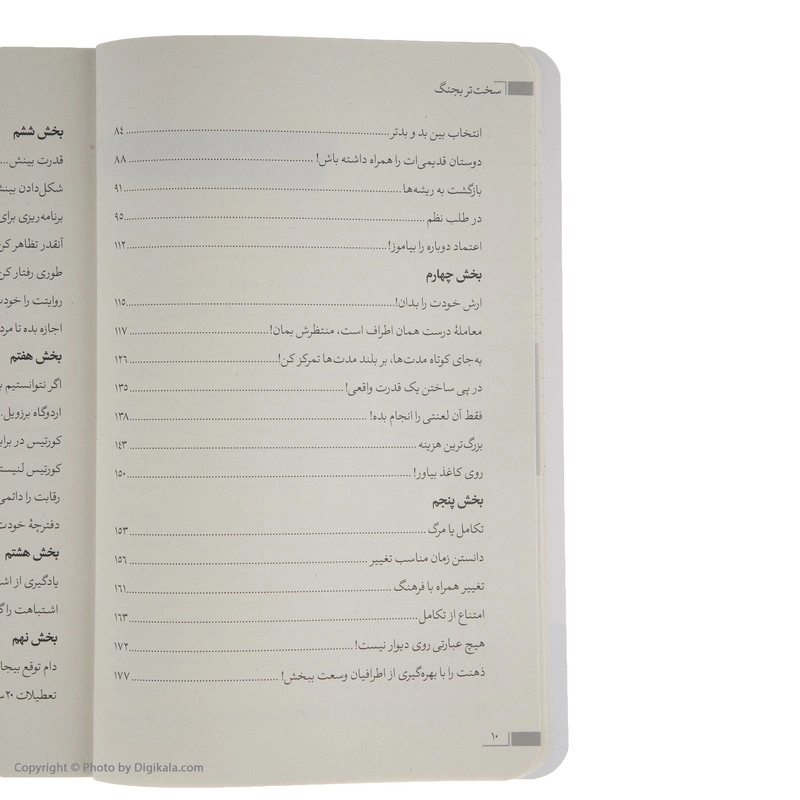 سخت‌تر بجنگ
انتخاب بین بد و بدتر ۸۴
دوستان قدیمی‌ات را همراه داشته باش! ۸۸
بازگشت به ریشه‌ها ۹۱
در طلب نظم ۹۵
اعتماد دوباره را بیاموز! ۱۱۲
بخش چهارم
ارش خودت را بدان! ۱۱۵
معاملهٔ درست همان اطراف است، منتظرش بمان! ۱۱۷
به‌جای کوتاه مدت‌ها، بر بلند مدت‌ها تمرکز کن! ۱۲۶
در پی ساختن یک قدرت واقعی! ۱۳۵
فقط آن لعنتی را انجام بده! ۱۳۸
بزرگ‌ترین هزینه ۱۴۳
روی کاغذ بیاور! ۱۵۰
بخش پنجم
تکامل یا مرگ ۱۵۳
دانستن زمان مناسب تغییر ۱۵۶
تغییر همراه با فرهنگ ۱۶۱
امتناع از تکامل ۱۶۳
هیچ عبارتی روی دیوار نیست! ۱۷۲
ذهنت را با بهره‌گیری از اطرافیان وسعت ببخش! ۱۷۷
۱۰
بخش ششم
قدرت بینش...
شکل‌دادن
برنامه‌ریزی برای
آنقدر تظاهر
طوری رفتار
روایتت را
اجازه بده تا
بخش هفتم
اگر نتوانستیم
اردوگاه برزویل
کورتیس در
کورتیس
رقابت را
دفترچهٔ
بخش هشتم
یادگیری از
اشتباهت را
بخش نهم
دام توقع
تعطیلات ۲۰
Copyright © Photo by Digikala.com